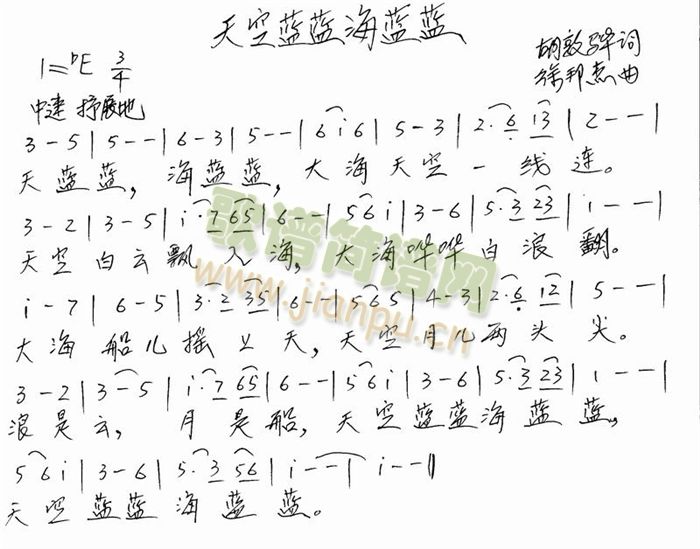 天空蓝蓝海蓝蓝
1=♭E 3/4
胡敦骅词
徐邦杰曲
中速 抒展地
3 - 5 | 5 - - | 6 - 3 | 5 - - | 6 i 6 | 5 - 3 | 2· 6 1 3 | 2 - - |
天 蓝 蓝, 海 蓝 蓝, 大 海 天 空 一 线 连。
3 - 2 | 3 - 5 | i · 7 6 5 | 6 - - | 5 6 i | 3 - 6 | 5 · 3 2 3 | 1 - - |
天 空 白 云 飘 入 海, 大 海 哗 哗 白 浪 翻。
i - 7 | 6 - 5 | 3 · 2 3 5 | 6 - - | 5 6 5 | 4 - 3 | 2 · 6 1 2 | 5 - - |
大 海 船 儿 摇 上 天, 天 空 月 儿 两 头 尖。
3 - 2 | 3 - 5 | i · 7 6 5 | 6 - - | 5 6 i | 3 - 6 | 5 · 3 2 3 | 1 - - |
浪 是 云, 月 是 船, 天 空 蓝 蓝 海 蓝 蓝,
5 6 i | 3 - 6 | 5 · 3 5 6 | i - - | i - - ‖
天 空 蓝 蓝 海 蓝 蓝。
歌谱简谱网
www.jianpu.cn